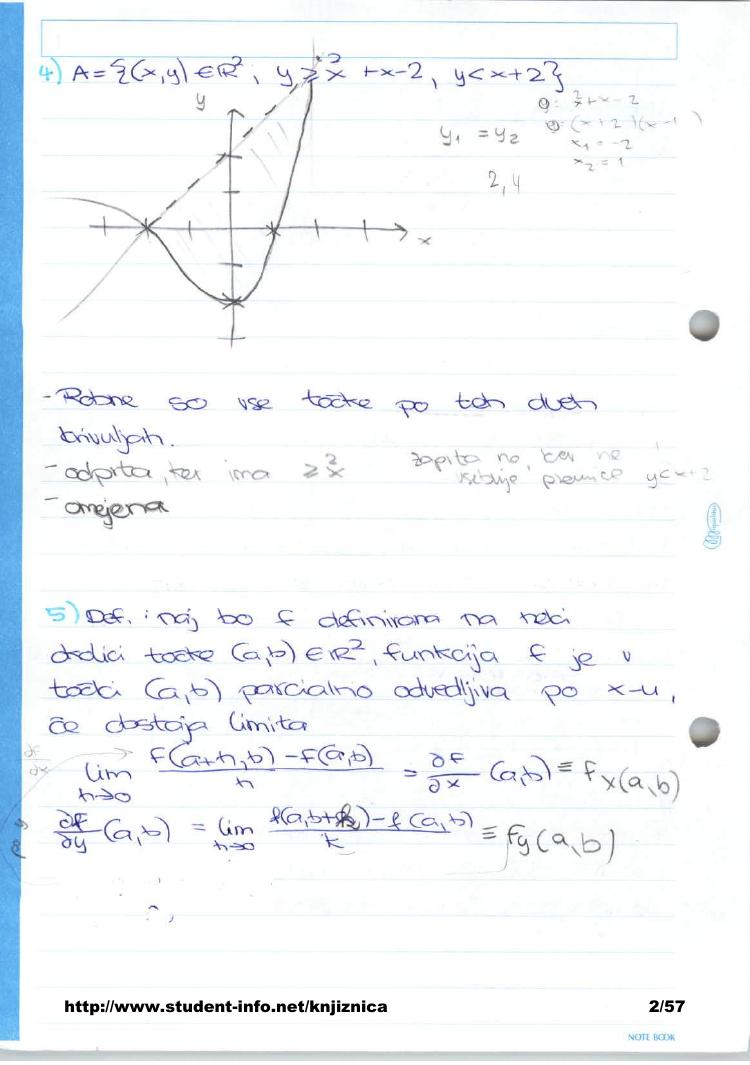 4) A = {(x,y) ∈ ℝ², y ≥ x² + x - 2, y < x + 2}
y
0 : x² + x - 2
(x+2)(x-1)
y₁ = y₂
x₁ = -2
x₂ = 1
2,4
x
- Robne so vse točke po teh dveh
krivuljah.
- odprta, ker ima ≥ x²
zaprta no, ker ne
vsebuje premice y < x + 2
- omejena
5) Def.: naj bo f definirana na neki
okolici točke (a,b) ∈ ℝ², funkcija f je v
točki (a,b) parcialno odvedljiva po x-u,
če obstaja limita
∂f/∂x
lim h→0 f(a+h,b) - f(a,b) / h = ∂f/∂x (a,b) ≡ fx(a,b)
∂f/∂y (a,b) = lim h→0 f(a,b+k) - f(a,b) / k ≡ fy(a,b)
http://www.student-info.net/knjiznica 2/57
NOTE BOOK